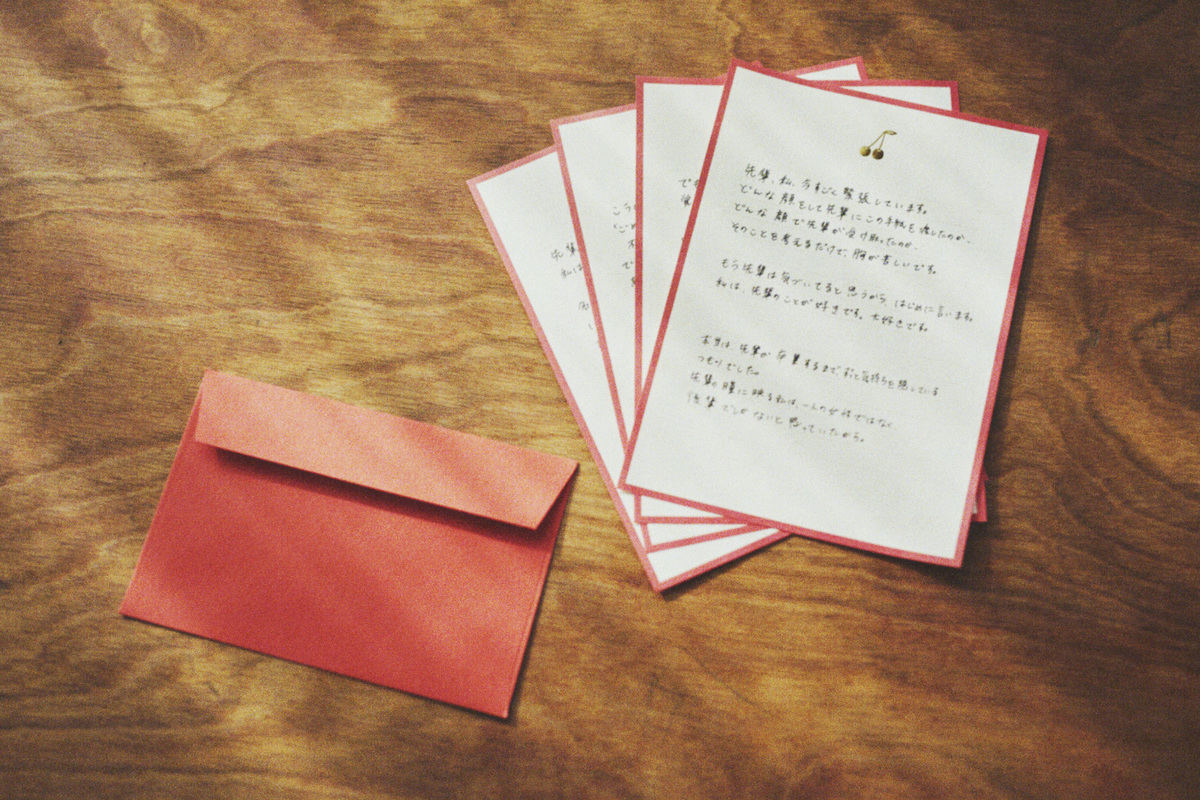 先輩、私、今すごく緊張しています。
どんな顔をして先輩にこの手紙を渡したのか、
どんな顔で先輩が受け取ったのか、
そのことを考えるだけで、胸が苦しいです。
もう先輩は気づいてると思うから、はじめに言います。
私は、先輩のことが好きです。大好きです。
本当は、先輩が卒業するまで、ずっと気持ちを隠している
つもりでした。
先輩の瞳に映る私は、一人の女性ではなく
後輩でしかないと思っていたから。
でも
こう
ごめ
で
先輩
私は